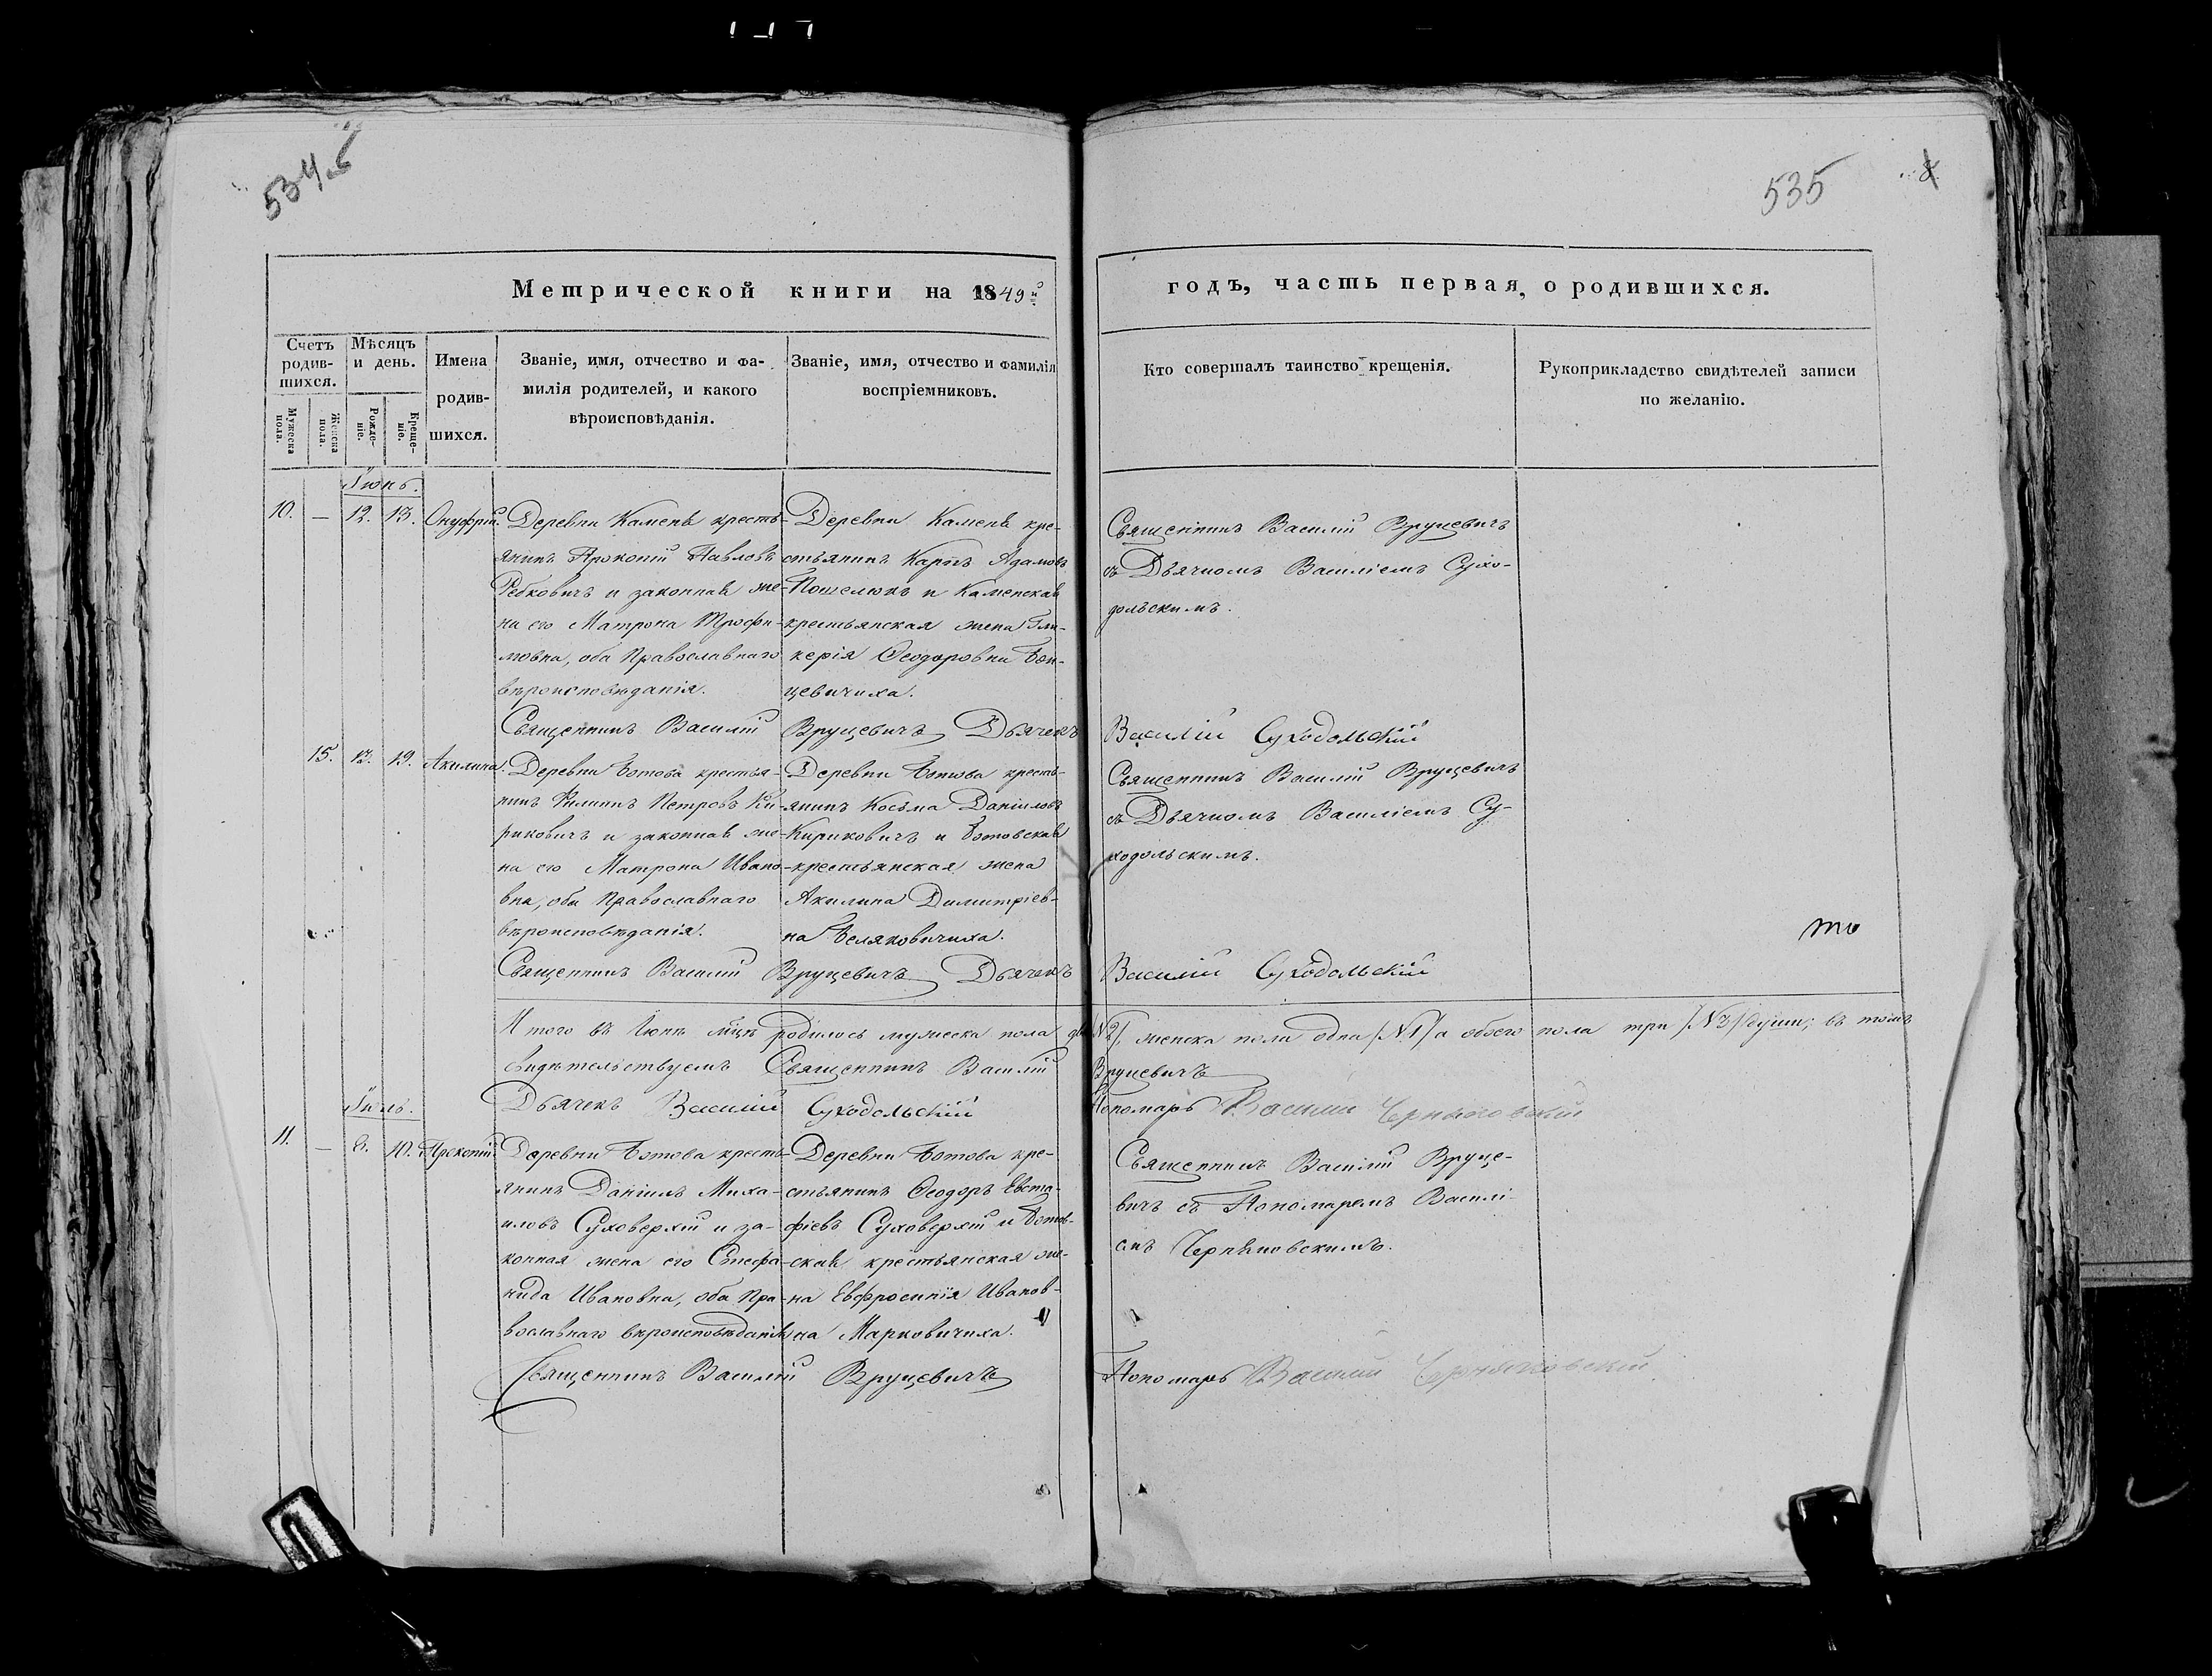 534 б
535
Метрической книги на 1849й
годъ, часть первая, о родившихся.
Счетъ родив-шихся.
Мужеска пола.
Женска пола.
Мѣсяцъ и день.
Рожде-ніе.
Креще-ніе.
Имена
родив-
шихся.
Званіе, имя, отчество и фа-
милія родителей, и какого
вѣроисповѣданія.
Званіе, имя, отчество и фамилія
воспріемниковъ.
Кто совершалъ таинство крещенія.
Рукоприкладство свидѣтелей записи
по желанію.
Іюнь.
10. — 12. 13. Онуфрій.
Деревни Каменя кресть-
янинъ Прокопій Павловъ
Рабковичъ и законная же-
на его Матрона Трофи-
мовна, оба Православнаго
вѣроисповѣданія.
Деревни Каменя кре-
стьянинъ Карпъ Адамовъ
Пошелюкъ и Каменская
крестьянская жена Гли-
керія Ѳеодоровна
цевичиха.
Священникъ Василій Вруцевичъ
съ Дьячкомъ Василіемъ Сухо-
дольскимъ.
Священникъ Василій Вруцевичъ Дьячекъ Василій Суходольскій
15. 12. 19. Акилина.
Деревни Ботова крестья-
нинъ Филиппъ Петровъ Ки-
риковичъ и законная же-
на его Матрона Ивано-
вна, оба Православнаго
вѣроисповѣданія.
Деревни Ботова кресть-
янинъ Косьма Даніиловъ
Кириковичъ и Ботовская
крестьянская жена
Акилина Димитріев-
на Беляковичиха.
Священникъ Василій Вруцевичъ
съ Дьячкомъ Василіемъ Су-
ходольскимъ.
Священникъ Василій Вруцевичъ Дьячекъ Василій Суходольскій
Итого въ Іюнѣ мцѣ родилось мужеска пола /№2/, женска пола одна /№1/ а обоего пола три /№3/ души; въ томъ
свидѣтельствуемъ Священникъ Василій Вруцевичъ
Дьячекъ Василій Суходольскій Пономарь Василій Черняковскій
Іюль.
11. — 8. 10. Прокопій.
Деревни Ботова кресть-
янинъ Даніилъ Миха-
иловъ Суховерхій и за-
конная жена его Стефа-
нида Ивановна, оба Пра-
вославнаго вѣроисповѣданія
Деревни Ботова кре-
стьянинъ Ѳеодоръ Евста-
фіевъ Суховерхій и Ботов-
ская крестьянская же-
на Евфросинія Иванов-
на Марковичиха.
Священникъ Василій Вруце-
вичъ съ Пономаремъ Василі-
емъ Черняковскимъ.
Священникъ Василій Вруцевичъ Пономарь Василій Черняковскій